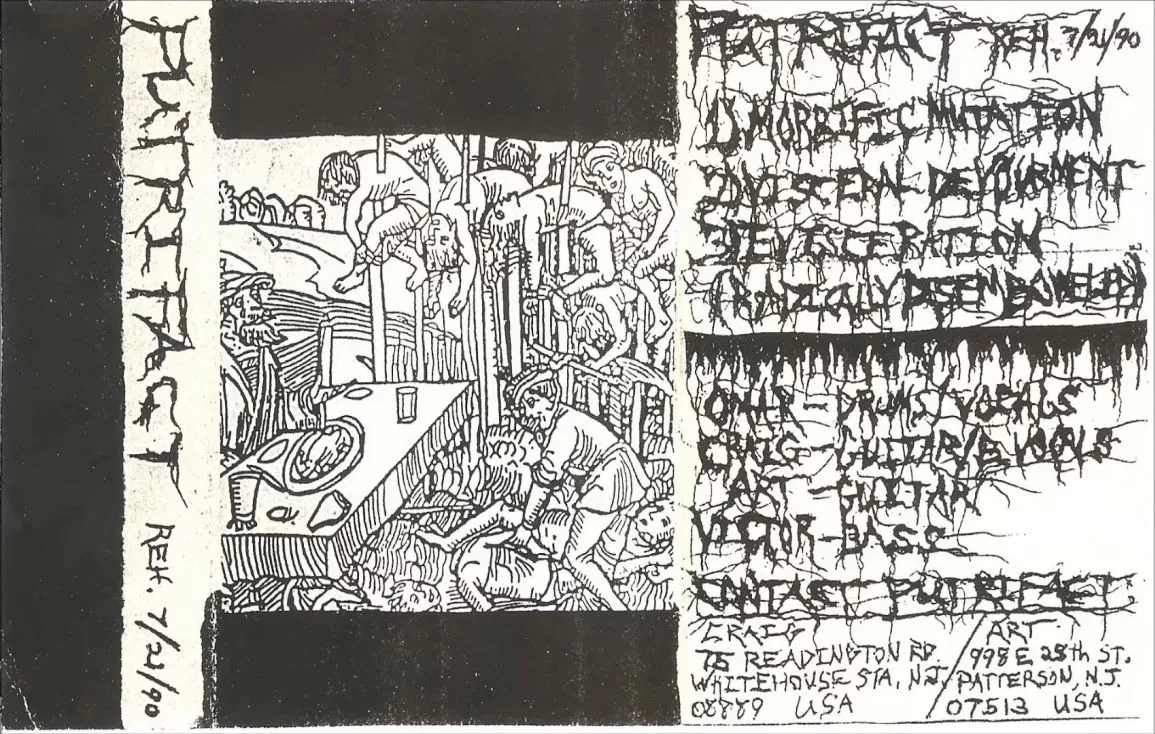 PUTRIFACT
REH. 7/21/90
PUTRIFACT REH. 7/21/90
1) MORBIFIC MUTATION
2) VISCERAL DEVOURMENT
3) EVISCERATION
DISEMBOWELED)
OMAR - DRUMS/VOCALS
CRAIG - GUITAR/B. VOCALS
ART - GUITAR
VICTOR - BASS
CONTACT PUTRIFACT
CRAIG
75 READINGTON RD.
WHITEHOUSE STA, N.J.
08889 USA
ART
998 E 28th ST.
PATTERSON, N.J.
07513 USA